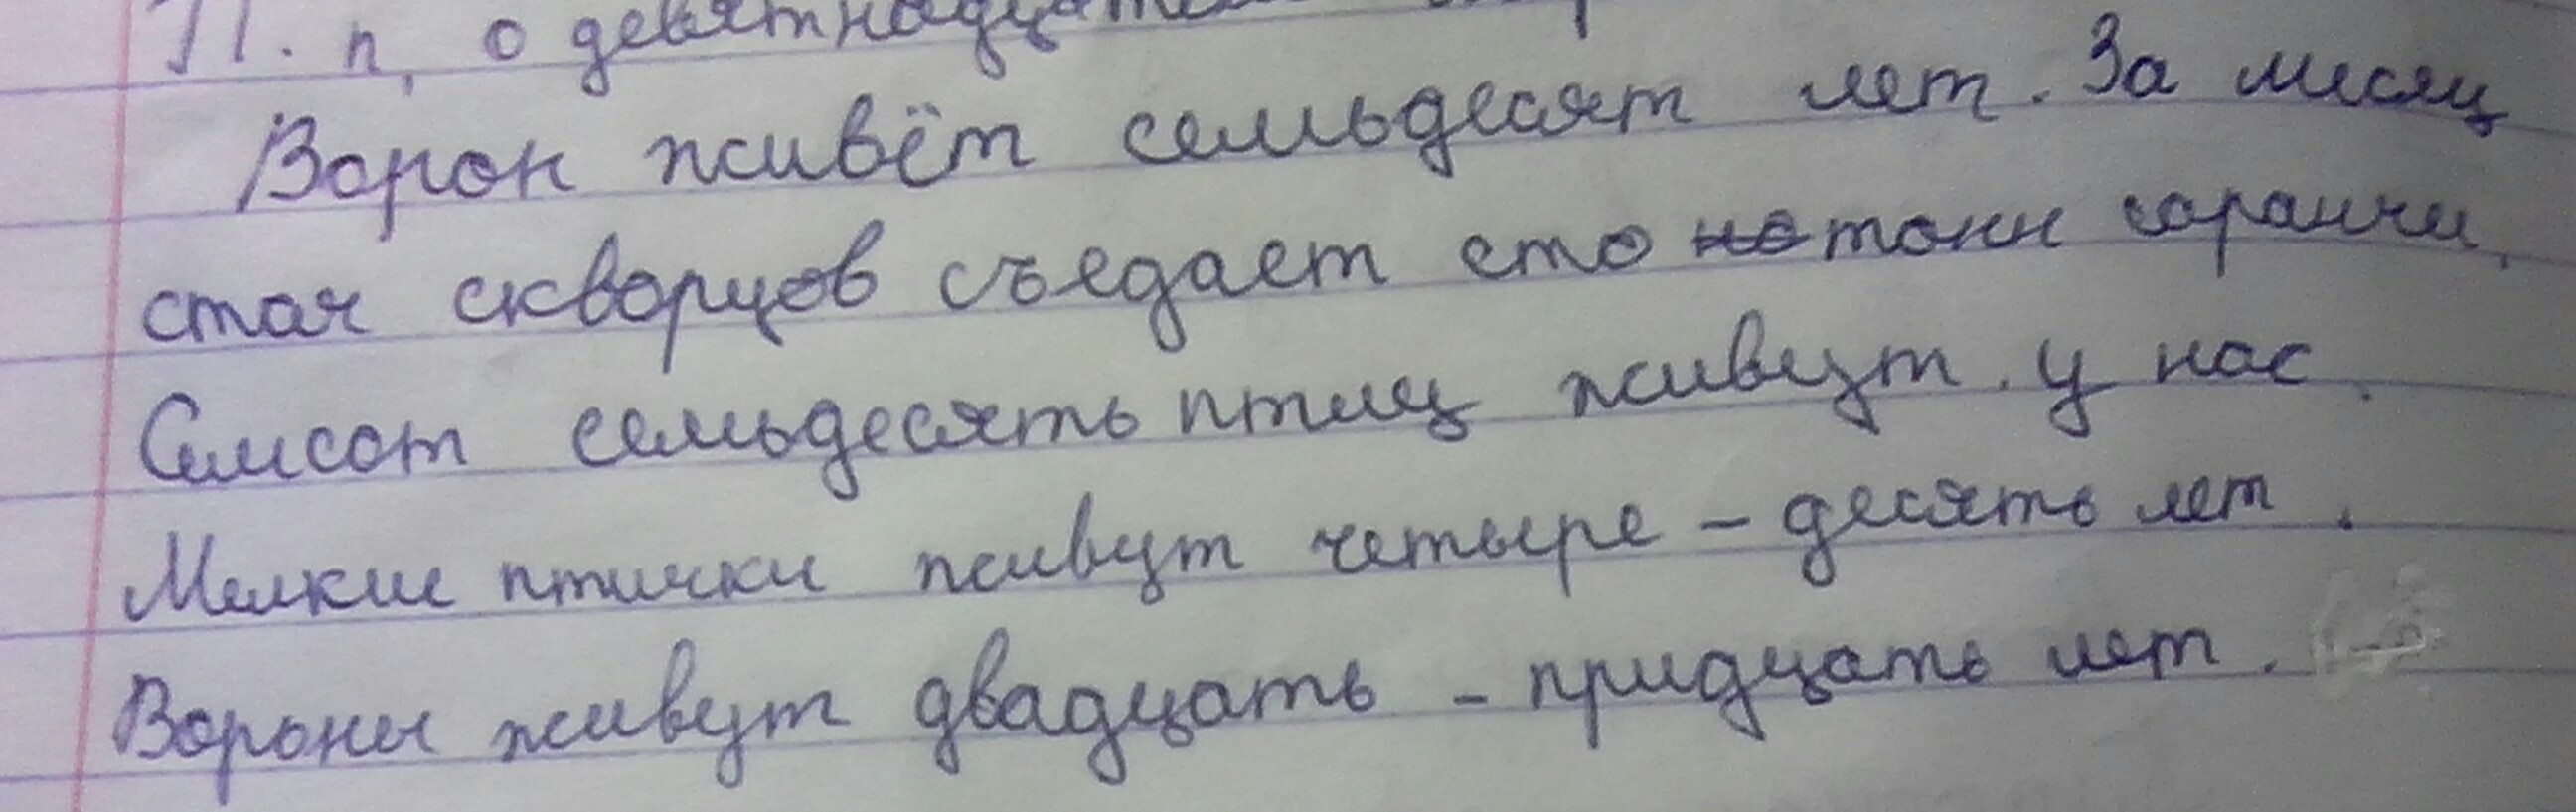 П. п, о девятнадцатом
Ворон живёт семьдесят лет. За месяц
стая скворцов съедает сто но тонн саранчи.
Семсот семьдесять птиц живут у нас.
Мелкие птички живут четыре - десять лет.
Вороны живут двадцать - тридцать лет.